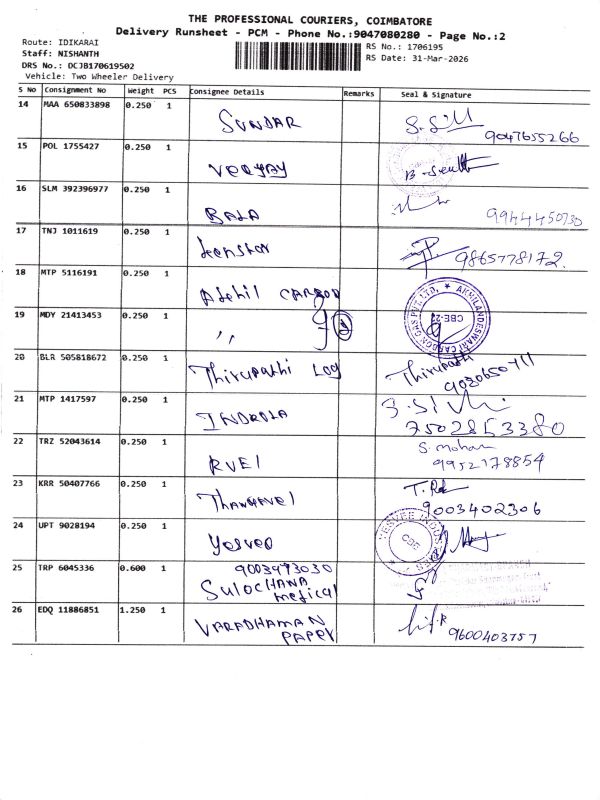 THE PROFESSIONAL COURIERS, COIMBATORE
Delivery Runsheet - PCM - Phone No.:9047080280 - Page No.:2
Route: IDIKARAI
Staff: NISHANTH
DRS No.: DCJB170619502
Vehicle: Two Wheeler Delivery
RS No.: 1706195
RS Date: 31-Mar-2026
S No Consignment No Weight PCS Consignee Details Remarks Seal & Signature
14 MAA 650833898 0.250 1 SUNDAR 9047655266
15 POL 1755427 0.250 1
16 SLM 392396977 0.250 1 BALA 9944450730
17 TNJ 1011619 0.250 1 9865778172.
18 MTP 5116191 0.250 1
19 MDY 21413453 0.250 1 ,, AKHILANDESWARI CARBON GAS PVT LTD,
20 BLR 505818672 0.250 1 Thirupathi LOG Thirupathi
21 MTP 1417597 0.250 1 7502853380
22 TRZ 52043614 0.250 1 S. mohan
9952178854
23 KRR 50407766 0.250 1 Thangavel 9003402306
24 UPT 9028194 0.250 1 Yesvee CBE
25 TRP 6045336 0.600 1 9003973030
SULOCHANA
medical
26 EDQ 11886851 1.250 1 VARADHAMAN
PAPPR 9600403757